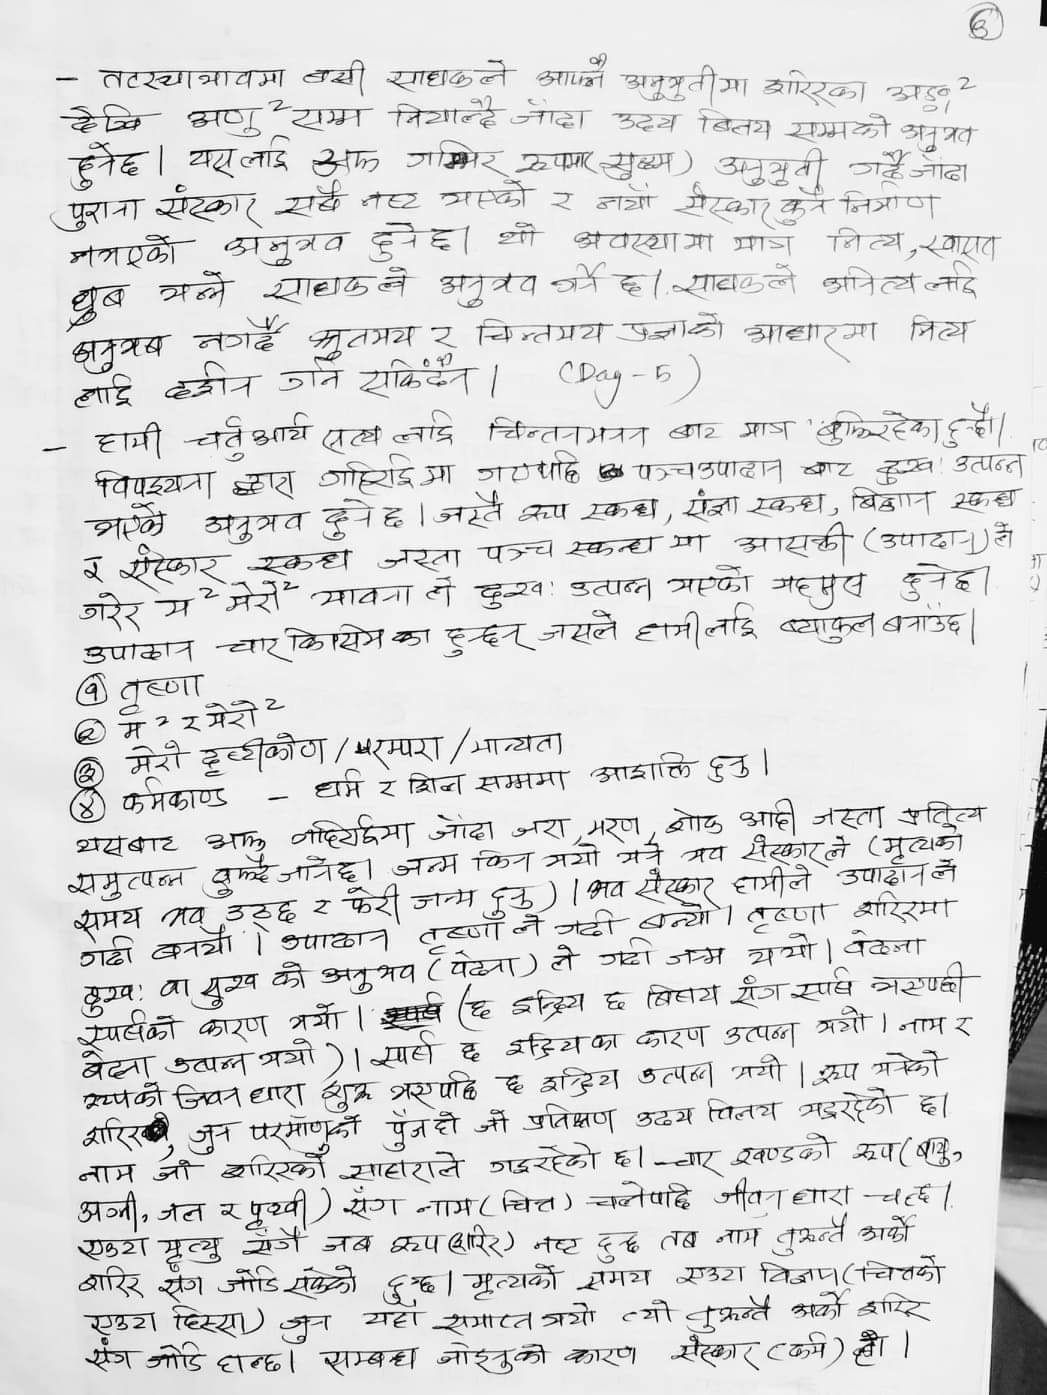 ६
- तटस्थाभावमा बसी साधकले आफ्नै अनुभुतीमा शरिरका अङ्ग २
देखि अणु २ सम्म नियाल्दै जाँदा उदय बिलय सम्मको अनुभव
हुनेछ। यसलाई अझ गम्भिर रूपमा (सुक्ष्म) अनुभुती गर्दै जाँदा
पुराना संस्कार सबै नष्ट भएको र नयाँ संस्कार कुनै निर्माण
नभएको अनुभव हुनेछ। यो अवस्थामा मात्र नित्य, स्वास्त
ध्रुब भन्ने साधकले अनुभव गर्ने छ। साधकले अनित्य लाई
अनुभब नगर्दै श्रुतमय र चिन्तमय प्रज्ञाको आधारमा नित्य
लाई दर्शन गर्न सकिँदैन। (Day-5)
- हामी चर्तुआर्य सत्य लाई चिन्तनमनन बाट मात्र बुझिरहेका हुन्छौं।
विपश्यना द्वारा गहिराईमा गएपछि पञ्चउपादान बाट दुःख उत्पन्न
भएको अनुभव हुनेछ। जस्तै रूप स्कन्ध, संज्ञा स्कन्ध, बिज्ञान स्कन्ध
र संस्कार स्कन्ध जस्ता पञ्च स्कन्धमा आसक्ती (उपादान) ले
गरेर म २ मेरो २ भावना ले दुःख उत्पन्न भएको महसुस हुनेछ।
उपादान चार किसिमका हुन्छन् जसले हामीलाई ब्याकुल बनाउँछ।
① तृष्णा
② म २ र मेरो २
③ मेरो दृष्टीकोण / परम्परा / मान्यता
④ कर्मकाण्ड - धर्म र शिल सम्ममा आशक्ति हुनु।
यसबाट अझ गहिराईमा जाँदा जरा, मरण, शोक आदी जस्ता प्रतित्य
समुत्पन्न बुझ्दै जानेछ। जन्म किन भयो भने भव संस्कारले (मृत्यको
समय भव उठ्छ र फेरी जन्म हुनु)। भव संस्कार हामीले उपादानले
गर्दा बनायौं। उपादान तृष्णा ले गर्दा बन्यो। तृष्णा शरिरमा
दुःख वा सुख को अनुभव (वेदना) ले गर्दा जन्म भयो। वेदना
स्पर्शको कारण भयो। (छ इन्द्रिय छ बिषय संग स्पर्श भएपछी
बेदना उत्पन्न भयो)। स्पर्श छ इन्द्रिय का कारण उत्पन्न भयो। नाम र
रूपको जिवन धारा शुरू भएपछि छ इन्द्रिय उत्पन्न भयो। रूप भनेको
शरिर, जुन परमाँणुको पुँज हो जो प्रतिक्षण उदय विलय भइरहेको छ।
नाम जो शरिरको साहाराले गइरहेको छ। चार खण्डको रूप (बायु,
अग्नी, जल र पृथ्वी) सँग नाम (चित्त) चलेपछि जीवन धारा चल्छ।
एउटा मृत्यु सँगै जब रूप (शरिर) नष्ट हुन्छ तब नाम तुरून्तै अर्को
शरिर सँग जोडि सकेको हुन्छ। मृत्यको समय एउटा विज्ञान (चित्तको
एउटा हिस्सा) जुन यहाँ समाप्त भयो त्यो तुरून्तै अर्को शरिर
सँग जोडि हाल्छ। सम्बन्ध जोड्नुको कारण संस्कार (कर्म) हो।